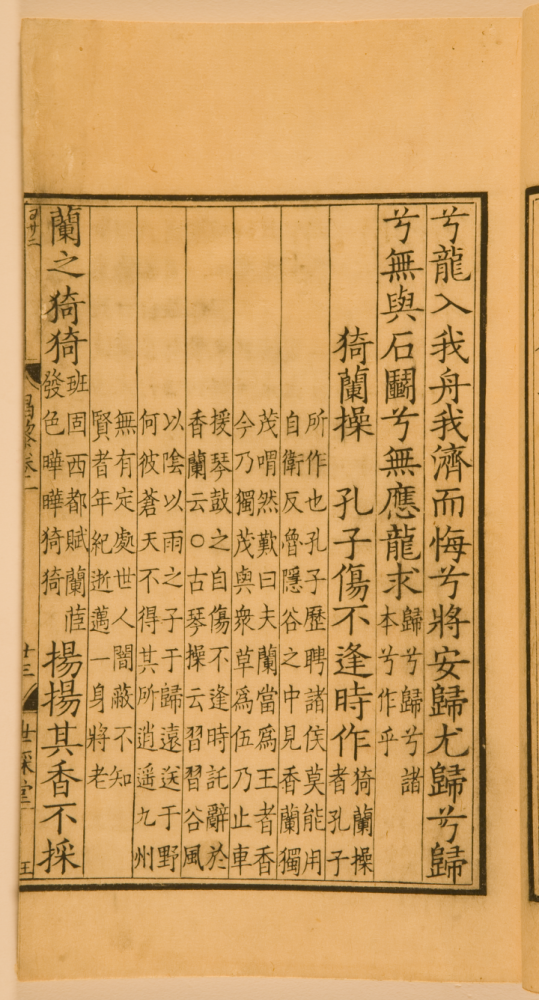 兮龍入我舟我濟而悔兮將安歸尤歸兮歸
兮無與石鬬兮無應龍求歸兮歸兮諸
本兮作乎
猗蘭操　孔子傷不逢時作猗蘭操
者孔子
所作也孔子歷聘諸侯莫能用
自衛反魯隱谷之中見香蘭獨
茂喟然歎曰夫蘭當爲王者香
今乃獨茂與衆草爲伍乃止車
援琴鼓之自傷不逢時託辭於
香蘭云○古琴操云習習谷風
以陰以雨之子于歸遠送于野
何彼蒼天不得其所逍遥九州
無有定處世人闇蔽不知
賢者年紀逝邁一身將老
蘭之猗猗班固西都賦蘭茝
發色曄曄猗猗揚揚其香不採
昌黎卷一
廿三
世綵堂